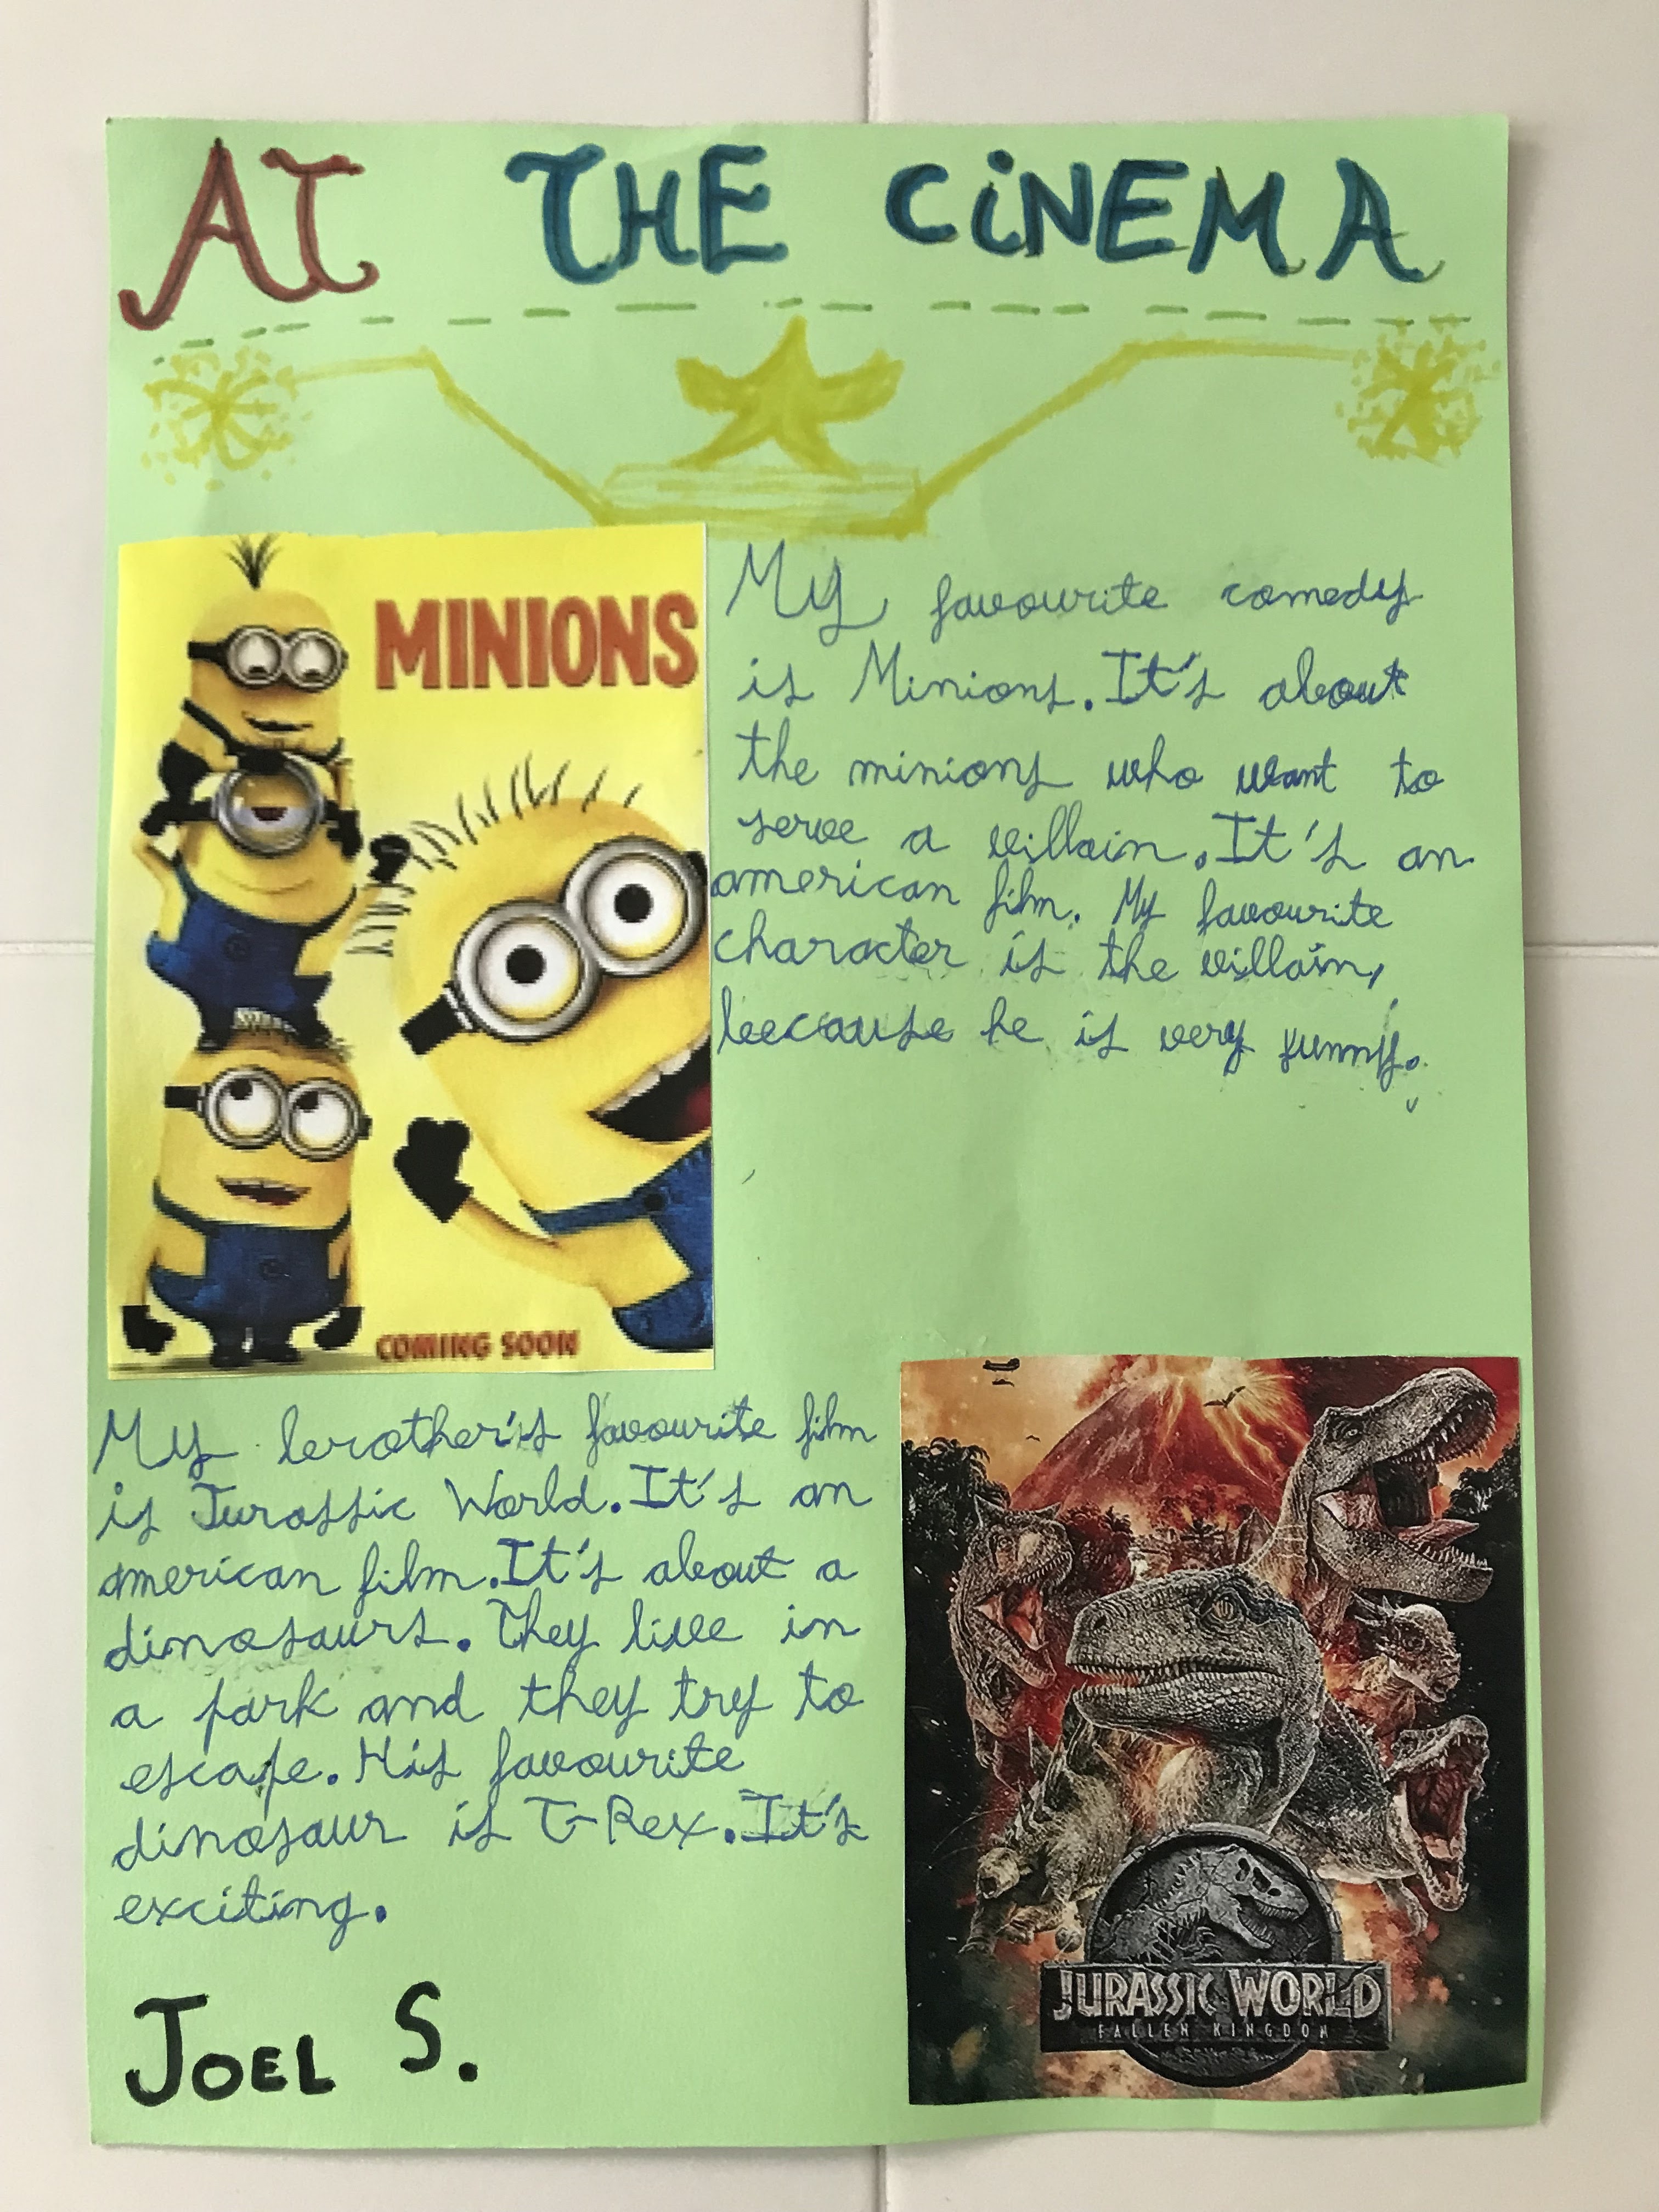 AT THE CiNEMA
MINIONS
COMING SOON
My favourite comedy
is Minions. It's about
the minions who want to
serve a villain. It's an
american film. My favourite
character is the villain,
because he is very funny.
My brother's favourite film
is Jurassic World. It's an
american film. It's about a
dinosaurs. They live in
a park and they try to
escape. His favourite
dinosaur is T-Rex. It's
exciting.
JURASSIC WORLD
FALLEN KINGDOM
JOEL S.